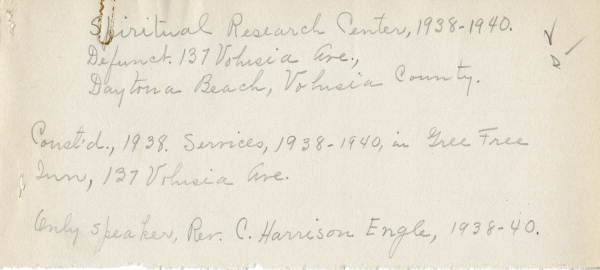 Spiritual Research Center, 1938-1940.
Defunct. 137 Volusia Ave.,
Daytona Beach, Volusia County.
Const'd., 1938. Services, 1938-1940, in Free
Inn, 137 Volusia Ave.
Only speaker, Rev. C. Harrison Engle, 1938-40.